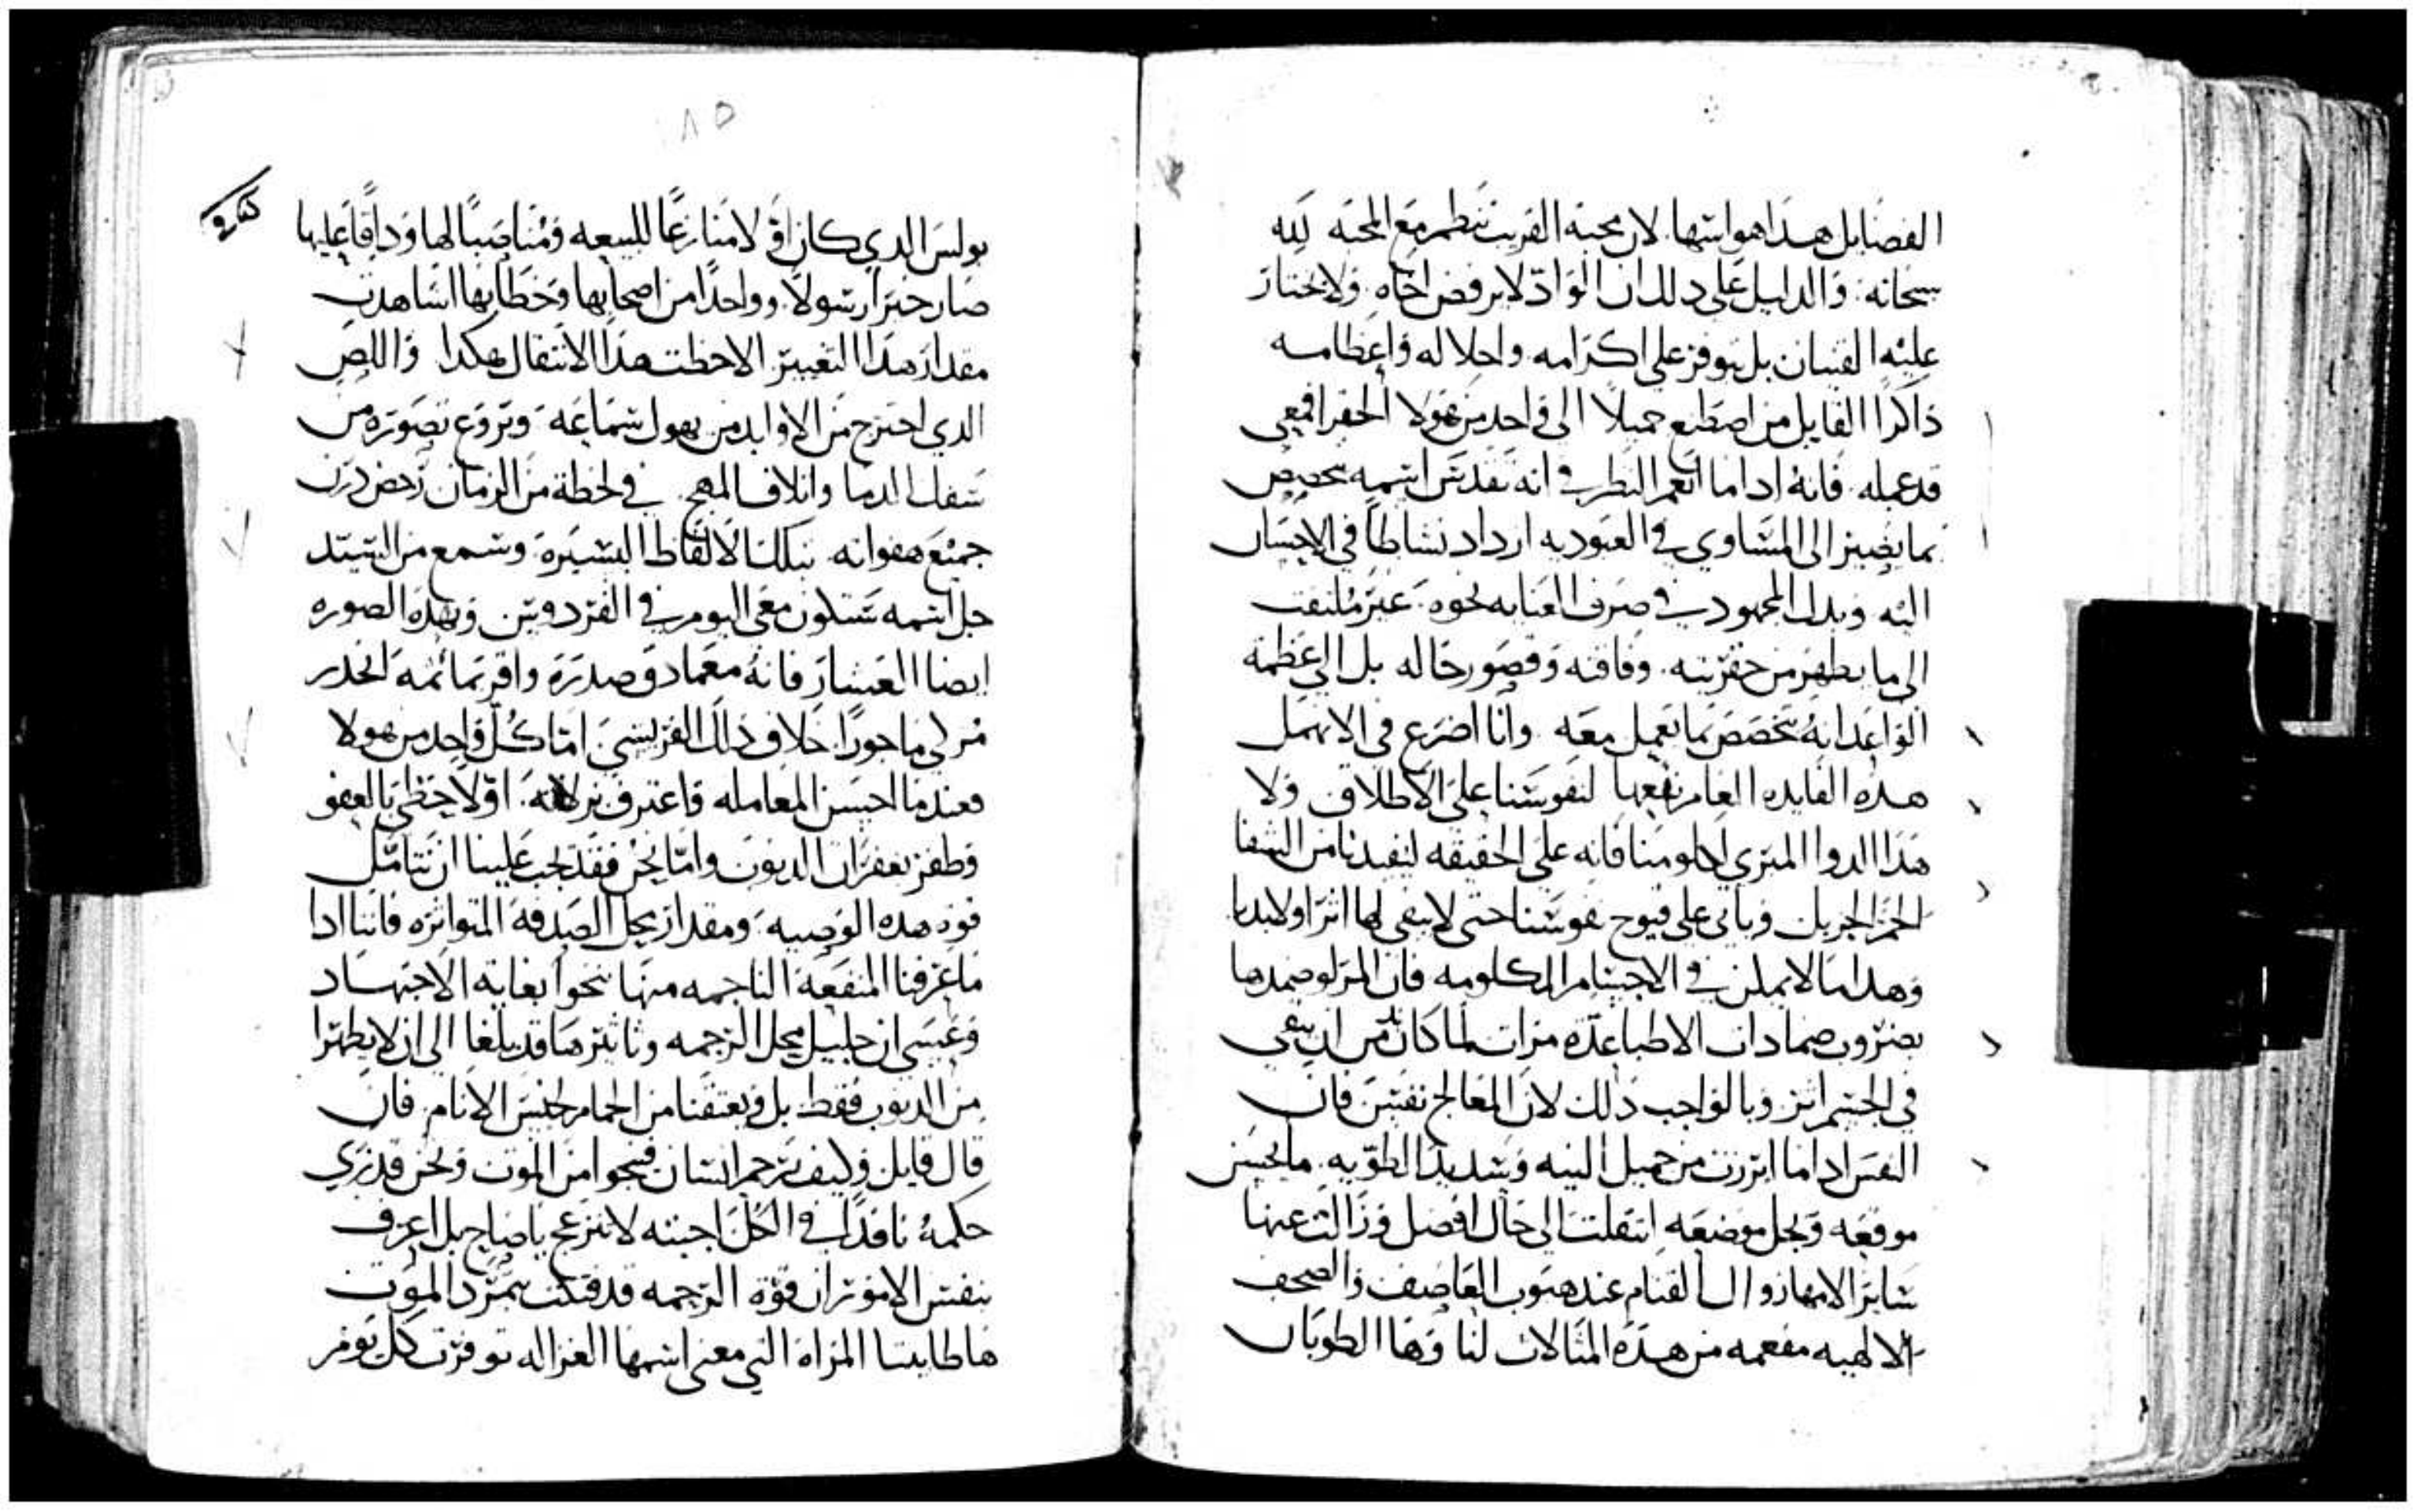 الفضايل هدا هو اسها. لان محبة القريب تنظم مع المحبه لله
سبحانه. والدليل على دلك ان الواد لا يرفض اخاه. ولا يختار
عليه القنيان بل يتوفر على اكرامه واجلاله واعظامه
ذاكرا القايل من اصطنع جميلا الى واحد من هولا الحقرا فمعي
قد عمله. فانه ادا ما انعم النظر في انه تقدس اسمه يخصص
بما يصير الى المساوي في العبوديه ازداد نشاطا في الاحسان
اليه وبدل المجهود في صرف العنايه نحوه. غير ملتفت
الى ما يظهر من حقريته. وفاقته وقصور حاله بل الى عظمة
الواعد انه يتخصص بما يعمل معه وانا اضرع في الا نهمل
هده الفايده العام نفعها لنفوسنا على الاطلاق ولا
هذا الدوا المبري لكلومنا فانه على الحقيقه ليفيدنا من الشفا
الجريل وياتي على قيوح نفوسنا حتى لا يبقى لها اثرا ولا ندبا
وهدا ما لا يمكن في الاجسام المكلومه فان المرء لو ضمدها
بضروب ضمادات الاطبا عدة مرات لما كان بد من ان يبقى
في الجسم اثر. وبالواجب دلك لان المعالج نفيس فان
النفس ادا ما ابرزت من جميل النيه وسديد الطويه. ما يحسن
موقعه ويجل موضعه انتقلت الى حال افضل وزالت عنها
ساير الامها زوال القتام عند هبوب العاصف والصحف
الالهيه مفعمه من هده المثالات لنا وها الطوبان
٨٥
بولس الدي كان اولا منازعا للبيعه ومناصبا لها ودافا عليها
صار خيرا رسولا. وواحدا من اصحابها وخطابها اشاهدت
مقدار هدا التغيير الاحظت هدا الانتقال هكدا واللص
الدي اجترح من الاوابد من يهول سماعه ويروع تصوره من
سفك الدما واتلاف المهج. في لحظة من الزمان رحض درن
جميع هفواته بتلك الالفاظ اليسيرة وسمع من السيد
جل اسمه ستكون معي اليوم في الفردوس وبهده الصوره
ايضا العشار فانه معما دق صدره واقر بماثمه انحدر
مزكى ماجورا خلاف ذلك الفريسي اما كل واحد من هولا
فعندما احسن المعامله واعترف بزلاته. اولا حظي بالعفو
وظفر بغفران الديون واما نحن فقد يجب علينا ان نتامل
قوة هده الوصيه ومقدار محل الصدقة المتواتره فاننا ادا
ما عرفنا المنفعة الناجمه منها نحوا بغاية الاجتهاد
وعسى ان جليل محل الرحمه وتاثيرها قد يبلغا الى ان لا يطهرا
من الديون فقط. بل ويعتقنا من الحمام لجنس الانام. فان
قال قايل وكيف يرحم انسان فينجوا من الموت ونحن قد نرى
حكمه نافدا في الكل اجبته لا تنزعج يا صاح بل اعرف
بنفس الامور ان قوة الرحمه قد فتكت بتمرد الموت
ها طابيتا المراة التي معنى اسمها الغزاله توفرت كل يوم